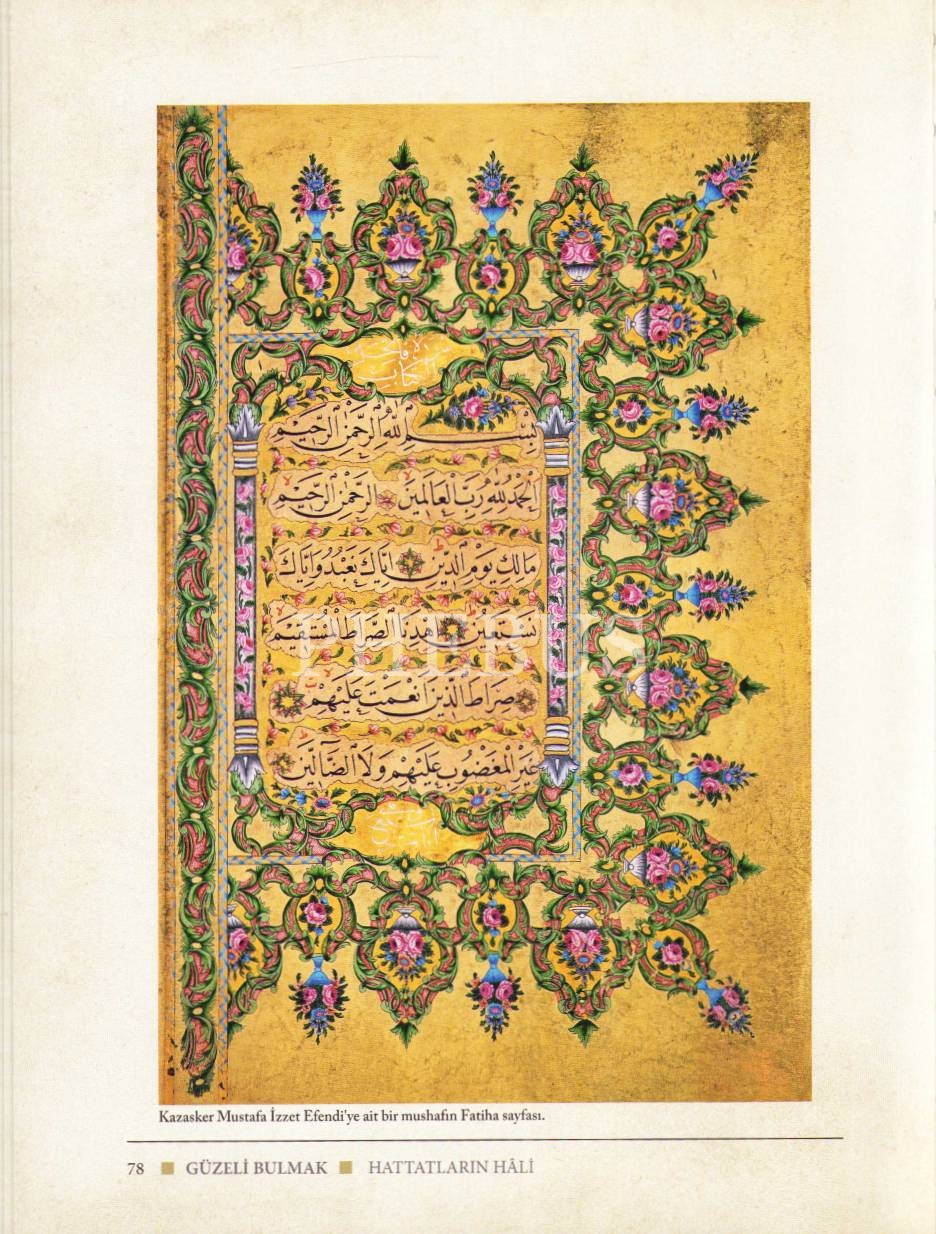 سورة فاتحة
الكتاب
بِسْمِ اللّٰهِ الرَّحْمٰنِ الرَّحِيمِ
اَلْحَمْدُ لِلّٰهِ رَبِّ الْعَالَمِينَ الرَّحْمٰنِ الرَّحِيمِ
مَالِكِ يَوْمِ الدِّينِ اِيَّاكَ نَعْبُدُ وَاِيَّاكَ
نَسْتَعِينُ اِهْدِنَا الصِّرَاطَ الْمُسْتَقِيمَ
صِرَاطَ الَّذِينَ اَنْعَمْتَ عَلَيْهِمْ
غَيْرِ الْمَغْضُوبِ عَلَيْهِمْ وَلَا الضَّالِّينَ
Kazasker Mustafa İzzet Efendi'ye ait bir mushafın Fatiha sayfası.
78 ■ GÜZELİ BULMAK ■ HATTATLARIN HÂLİ